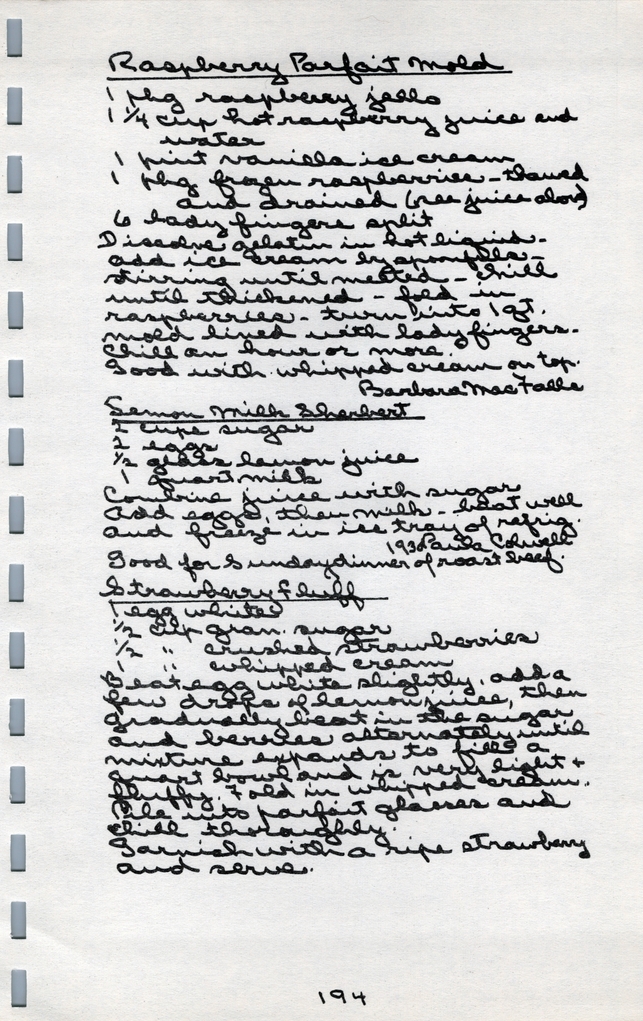 Raspberry Parfait Mold
1 pkg raspberry jello
1 1/4 cup hot raspberry juice and
water
1 pint vanilla ice cream
1 pkg frozen raspberries - thawed
and drained (see juice above)
6 lady fingers split
Dissolve gelatin in hot liquid -
add ice cream by spoonfulls -
stirring until melted - chill
until thickened - fold in
raspberries - turn into 1 qt.
mold lined with lady fingers -
Chill an hour or more.
Good with whipped cream on top.
Barbara MacFalle
Lemon Milk Sherbert
2 cups sugar
2 eggs
1/2 glass lemon juice
1 quart milk
Combine juice with sugar
Add eggs, then milk - beat well
and freeze in ice tray of refrig.
1930 Paula Colwell
Good for Sunday dinner of roast beef.
Strawberry Fluff
1 egg white
1/2 cup gran. sugar
1/2 " crushed strawberries
1 " whipped cream
Beat egg white slightly, add a
few drops of lemon juice, then
gradually beat in the sugar
and berries alternately until
mixture expands to fill a
quart bowl and is very light +
fluffy. Fold in whipped cream.
Pile into parfait glasses and
chill thoroughly.
Garnish with a ripe strawberry
and serve.
194